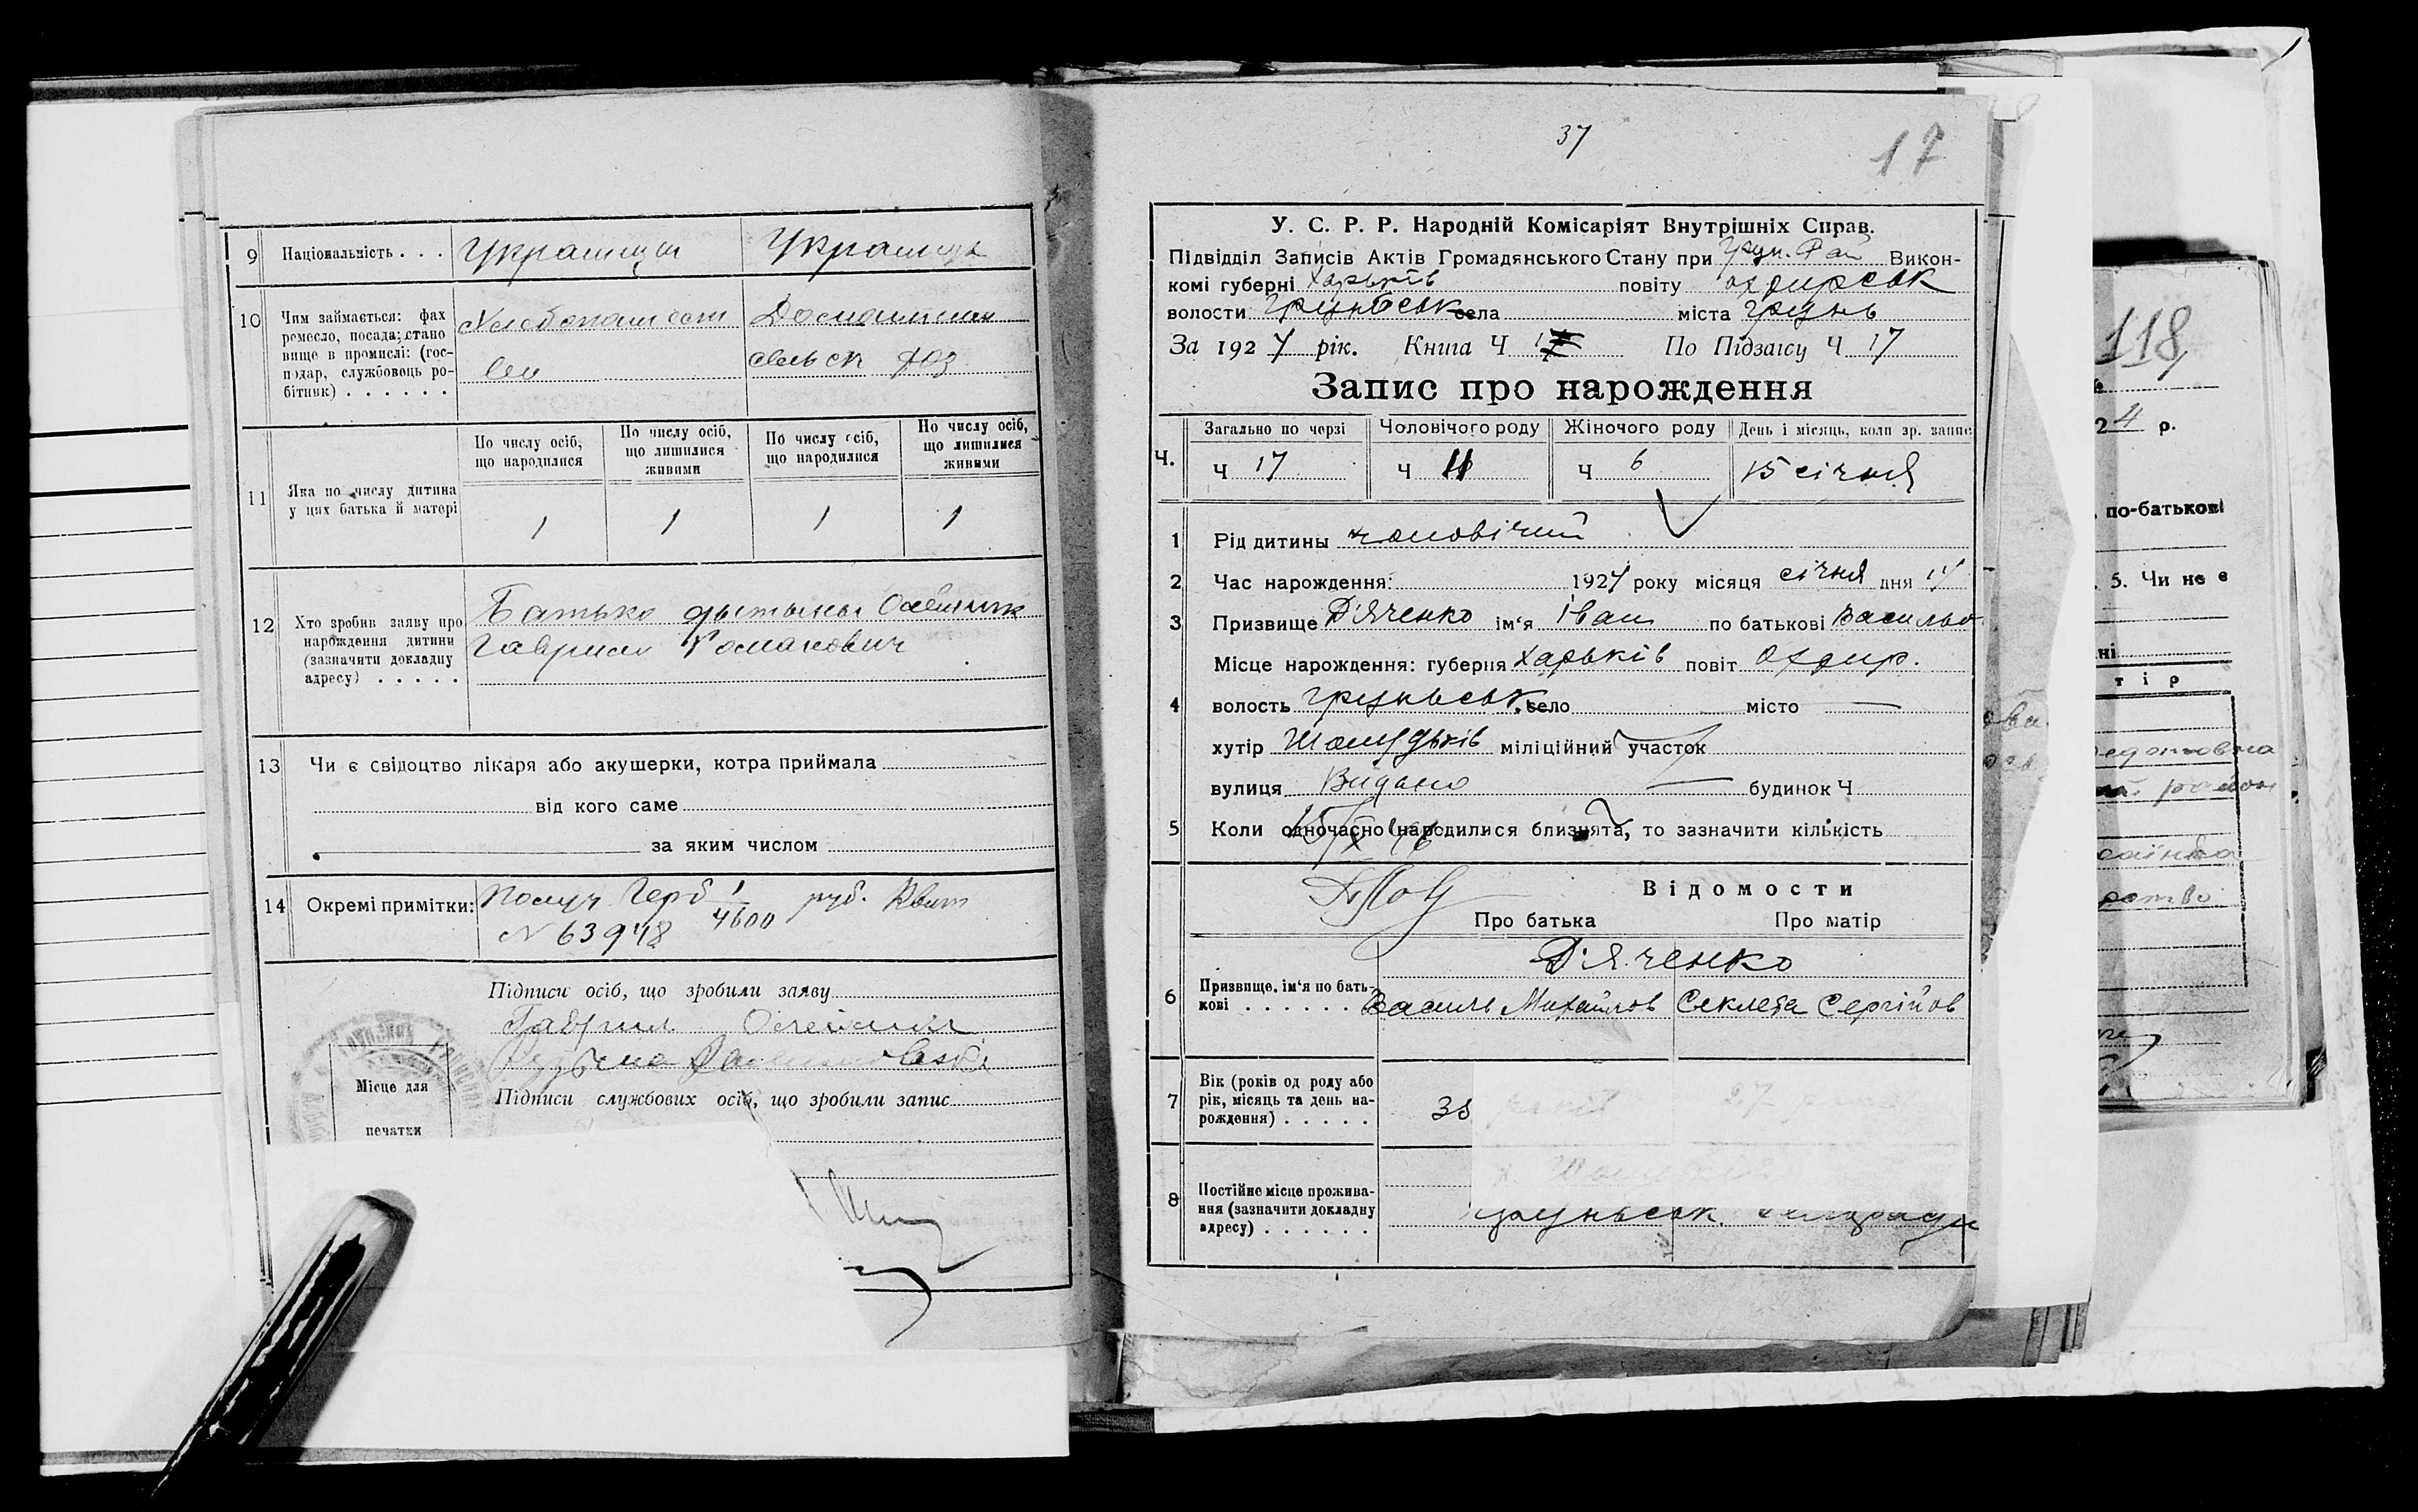 9 Національність . . . Украинци Украинци
10 Чим займається: фах ремесло, посада; становище в промислі: (господар, службовець робітник) . . . . . . Домашнин
сельск хоз
По числу осіб, що народилися По числу осіб, що лишилися живими По числу осіб, що народилися По числу осіб, що лишилися живими
11 Яка по числу дитина у цих батька й матері 1 1 1 1
12 Хто зробив заяву про нарождення дитини (зазначити докладну адресу) . . . . . Батько дытыны
Гаврило Романович
13 Чи є свідоцтво лікаря або акушерки, котра приймала
від кого саме
за яким числом
14 Окремі примітки: Получ Герб 1 руб. Квит
N 63948 4600
Підписи осіб, що зробили заяву
Гаврил
Місце для печатки
Підписи службових осіб, що зробили запис
37
17
У. С. Р. Р. Народній Комісаріят Внутрішніх Справ.
Підвідділ Записів Актів Громадянського Стану при Грун. Рай Викон-
комі губерні Харьків повіту охдирськ
волости Груньськ села міста Грунь
За 1924 рік. Книга Ч По Підзагсу Ч 17
Запис про нарождення
Ч. Загально по черзі Чоловічого роду Жіночого роду День і місяць, коли зр. запис
Ч 17 Ч 11 Ч 6 15 січня
1 Рід дитины чоловічий
2 Час нарождення: 1924 року місяця січня дня 14
3 Призвище Д'яченко ім'я Іван по батькові Васильо
4 Місце нарождення: губерня Харьків повіт Охдир.
волость Груньськ. село місто —
хутір міліційний участок
вулиця Видано будинок Ч
5 Коли одночасно народилися близнята, то зазначити кількість
Відомости
Про батька Про матір
Д'яченко
6 Призвище, ім'я по батькові . . . . . . Василь Михайлов Секлета Сергійов
7 Вік (років од роду або рік, місяць та день нарождення) . . . . . 38 років 27
8 Постійне місце проживання (зазначити докладну адресу) . . . . . .
Груньськ.
118
24 р.
по-батькові
5. Чи не є
ні
тір
район